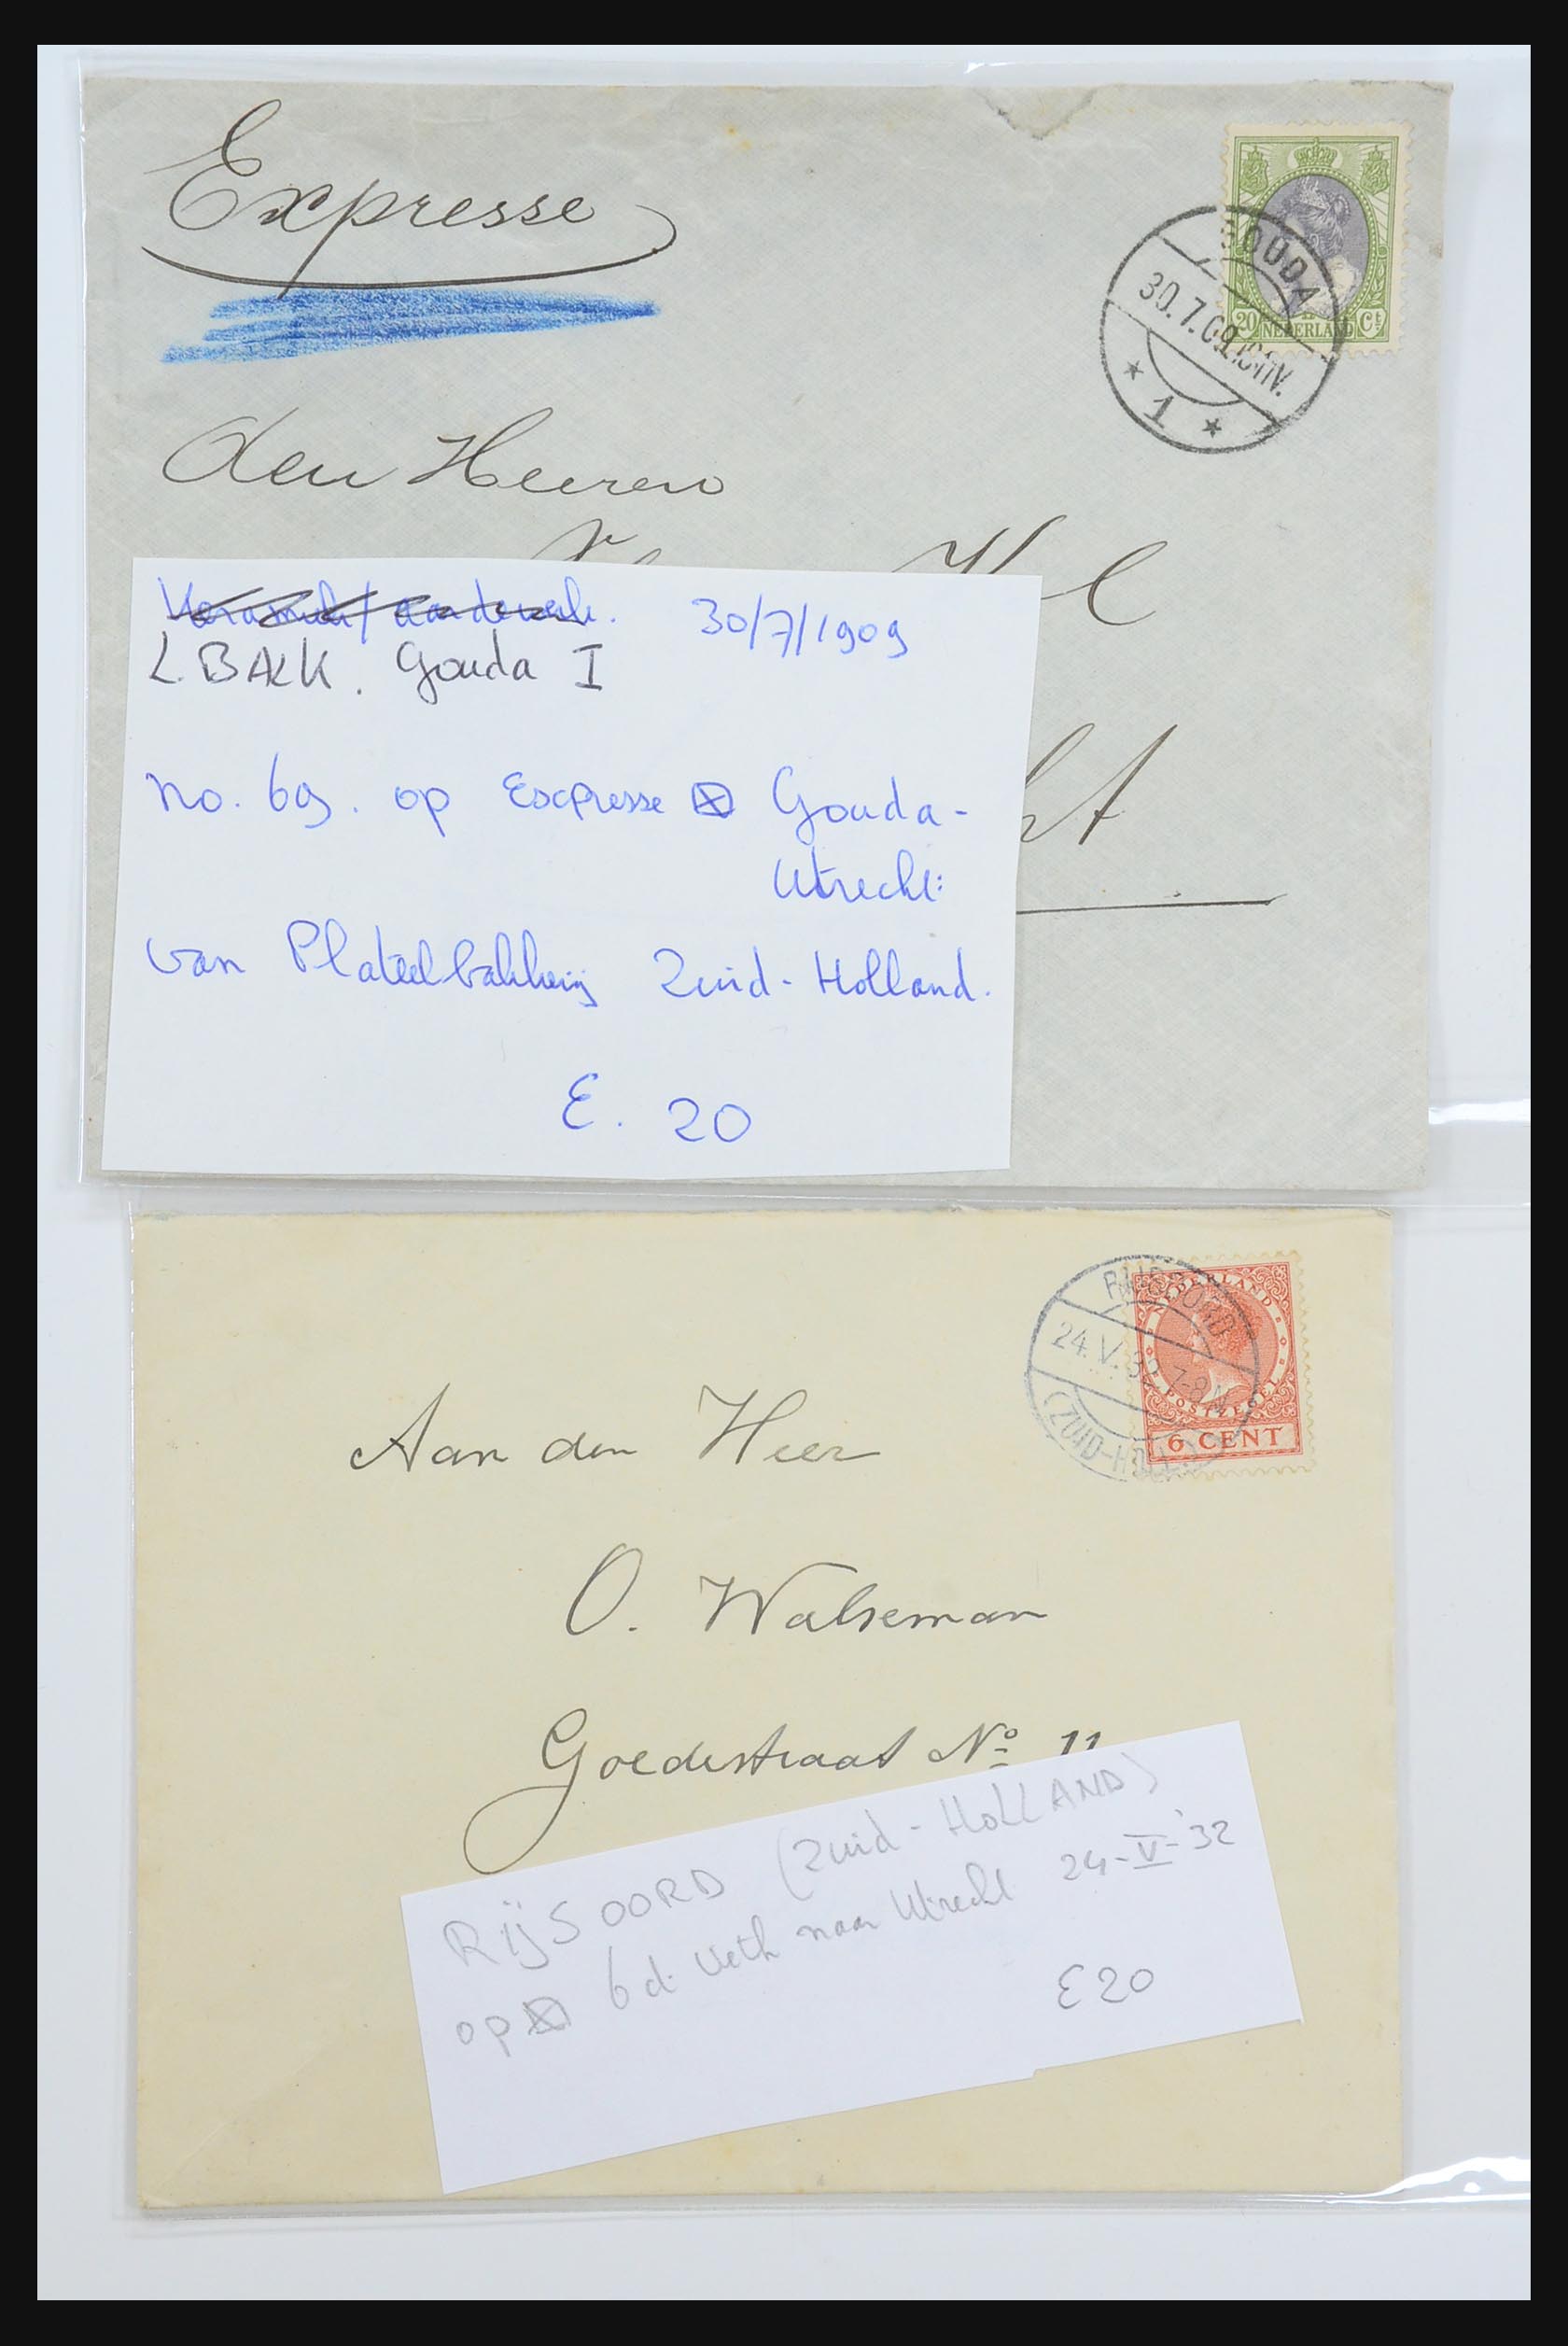 Expresse
GOUDA
30.7.09
1
20 NEDERLAND Ct
den Heeren
Keramiek/aardewerk. 30/7/1909
L.BALK. Gouda I
no. 69. op Expresse Gouda-
Utrecht:
van Plateelbakkerij Zuid-Holland.
E. 20
ht
NEDERLAND
POSTZEGEL
6 CENT
RIJSOORD
24.V.32 7-8N
(ZUID-HOLL.)
Aan den Heer
O. Walseman
Goedestraat No 11
RIJSOORD (Zuid-HOLLAND)
op 6 ct. Veth naar Utrecht 24-V-'32
E20